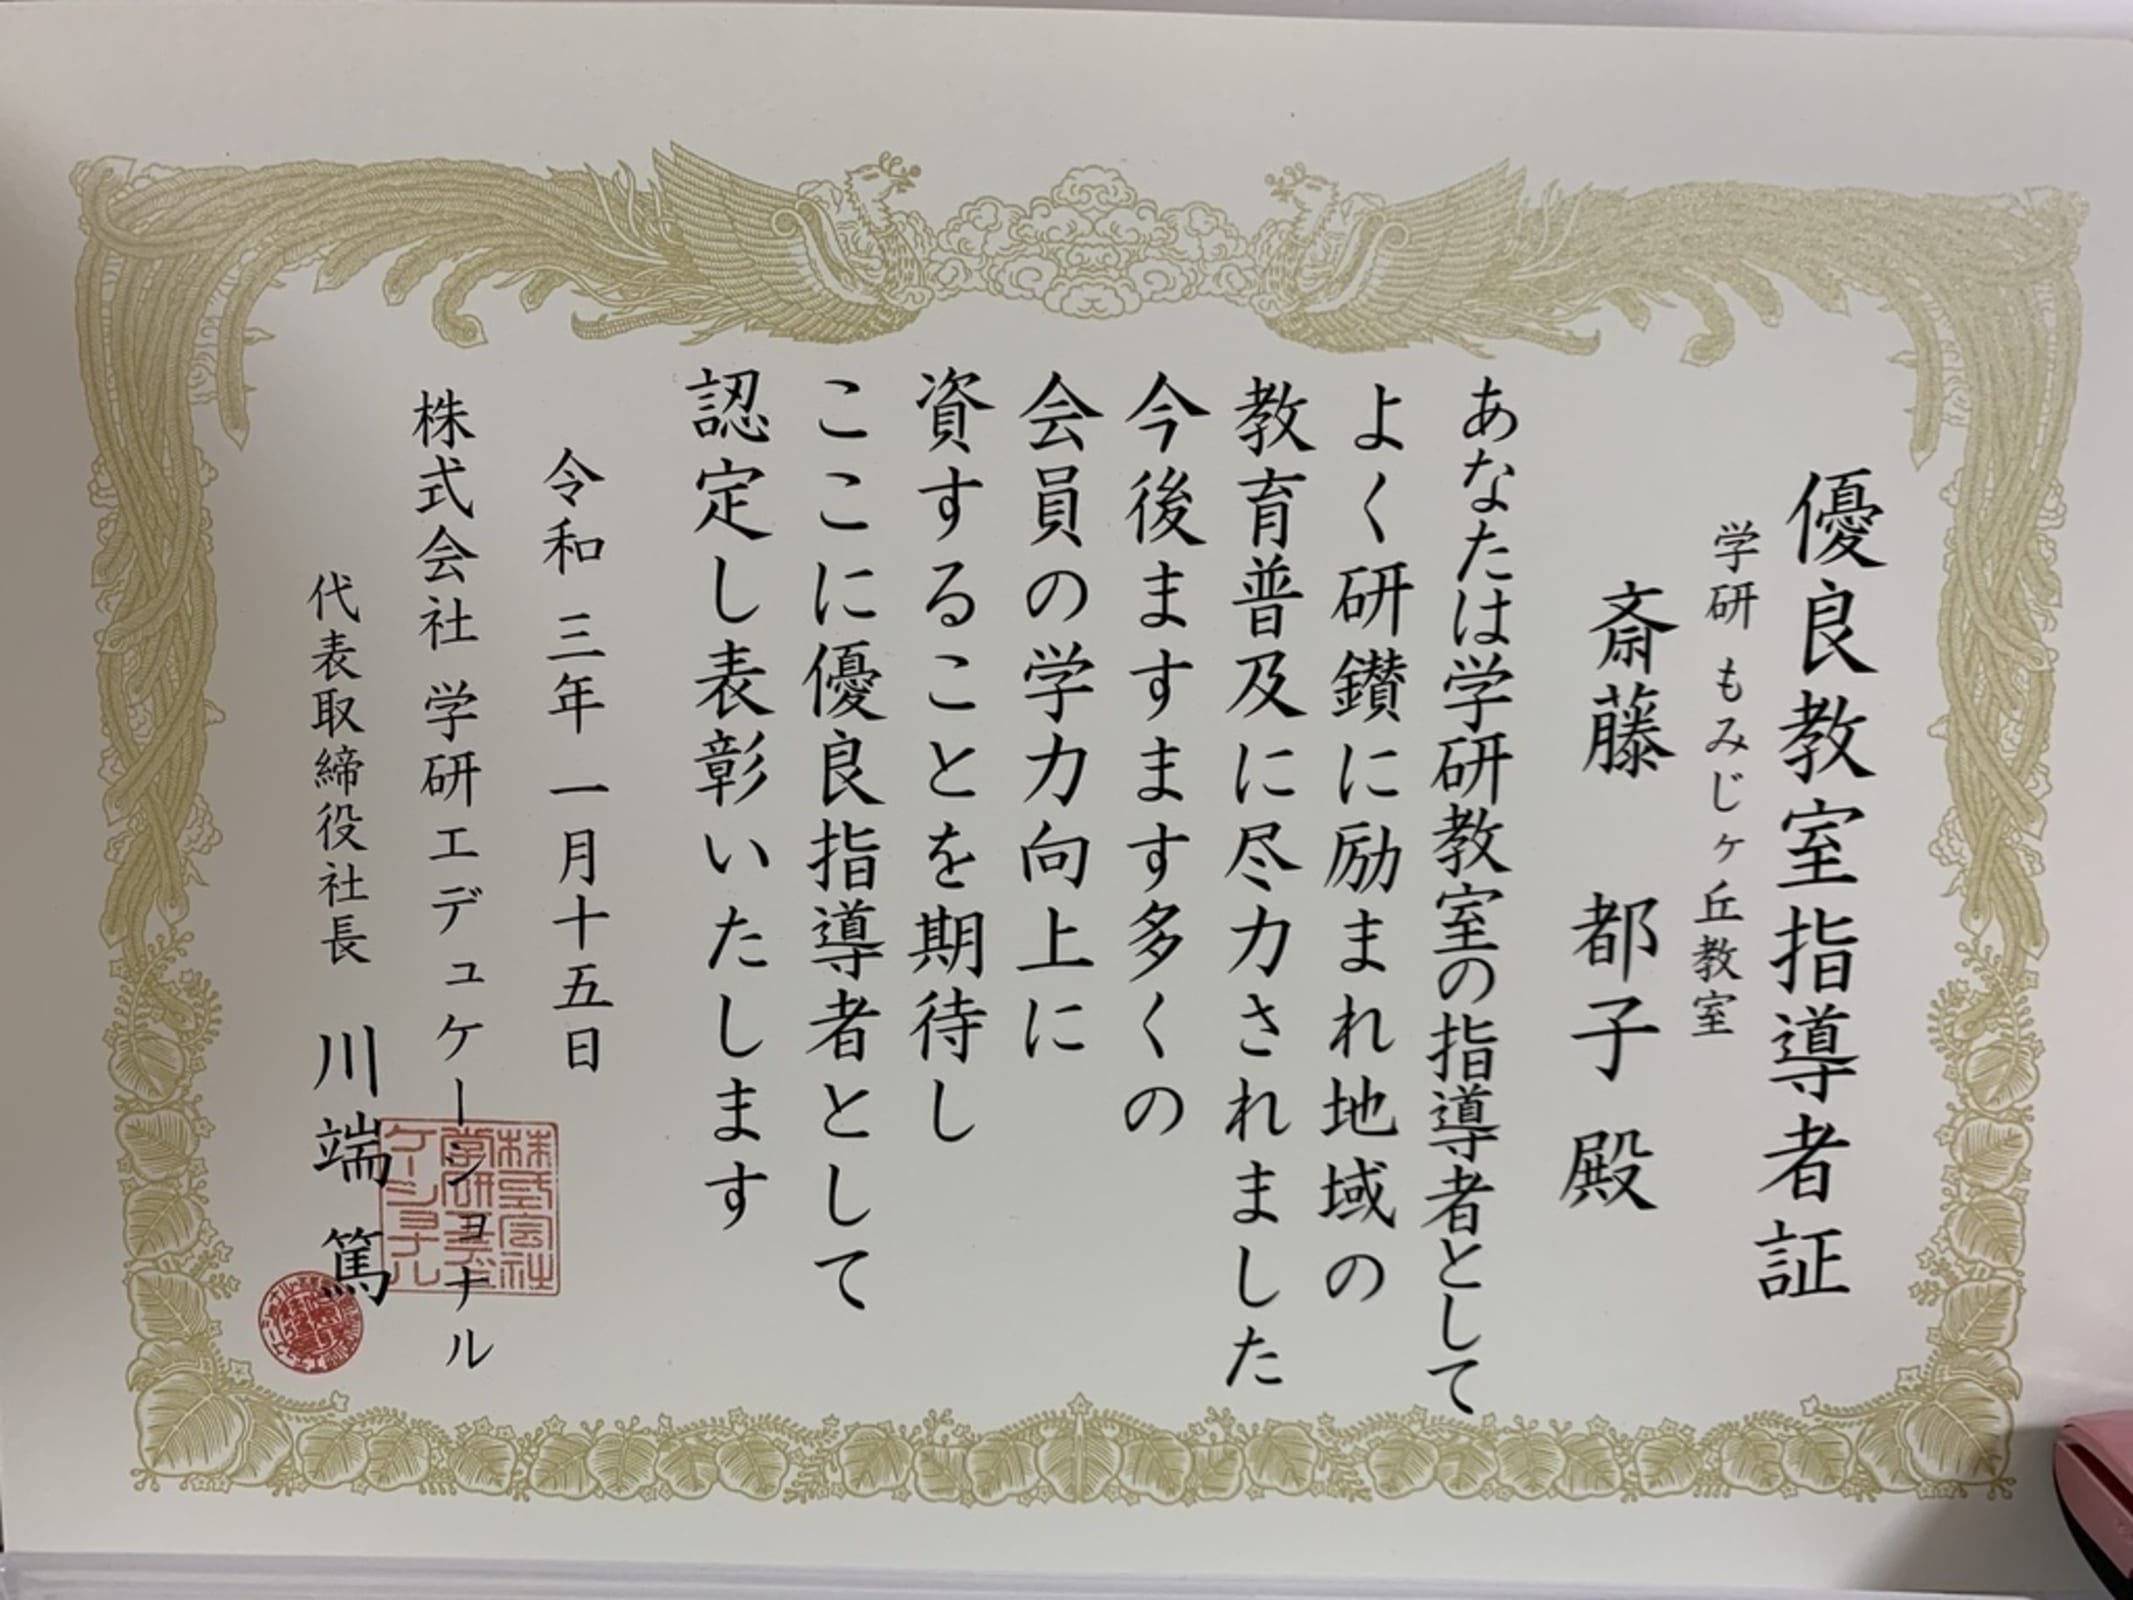 優良教室指導者証
学研 もみじヶ丘教室
斎藤 都子 殿
あなたは学研教室の指導者として
よく研鑚に励まれ地域の
教育普及に尽力されました
今後ますます多くの
会員の学力向上に
資することを期待し
ここに優良指導者として
認定し表彰いたします
令和 三年 一月十五日
株式会社 学研エデュケーショナル
代表取締役社長 川端 篤
株式会社
学研エデュ
ケーショナル